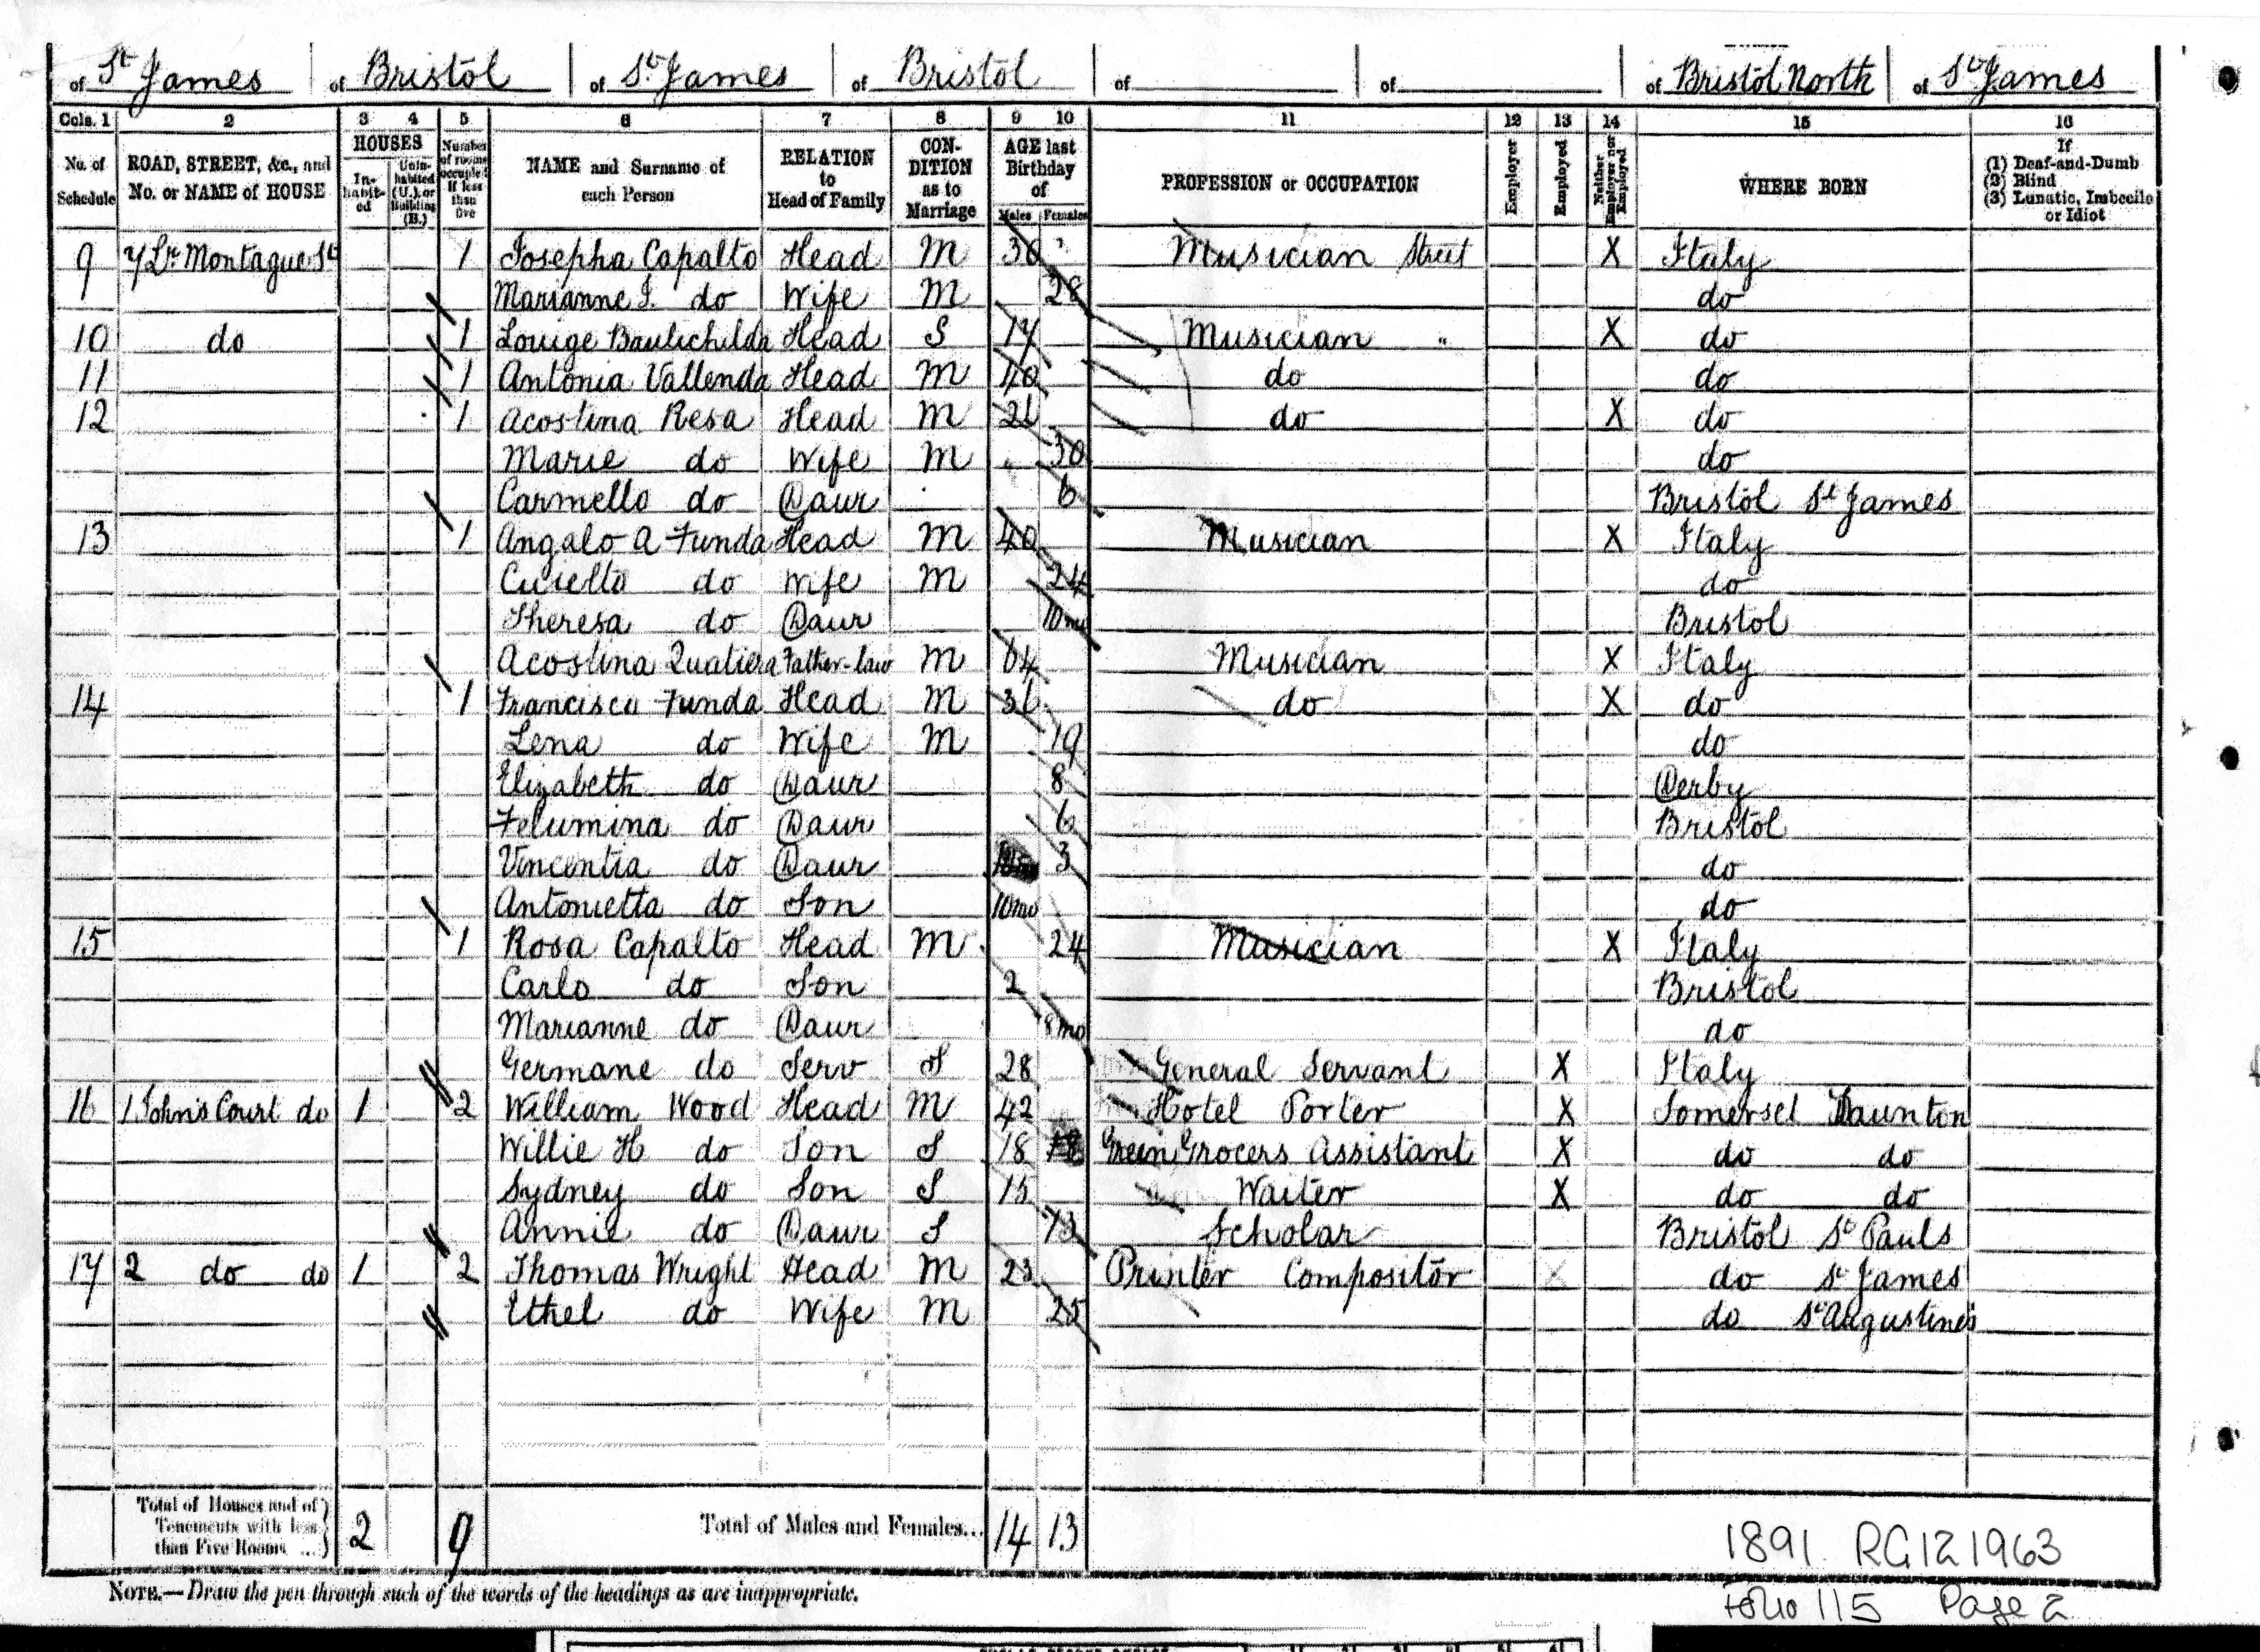 of St James of Bristol of St. James of Bristol of of of Bristol North of St James
Cols. 1 2 3 4 5 6 7 8 9 10 11 12 13 14 15 16
No. of Schedule ROAD, STREET, &c., and No. or NAME of HOUSE HOUSES In-habit-ed Unin-habited (U.), or Building (B.) Number of rooms occupied if less than five NAME and Surname of each Person RELATION to Head of Family CON-DITION as to Marriage AGE last Birthday of Males Females PROFESSION or OCCUPATION Employer Employed Neither Employer nor Employed WHERE BORN If (1) Deaf-and-Dumb (2) Blind (3) Lunatic, Imbecile or Idiot
9 7 Lr. Montague St 1 Josepha Capalto Head M 30 Musician Street X Italy
Marianne J. do Wife M 28 do
10 do 1 Louige Baulichilda Head S 17 Musician " X do
11 1 Antonia Vallenda Head M 40 do do
12 1 Acostina Resa Head M 26 do X do
Marie do Wife M 30 do
Carmello do Daur 6 Bristol St James
13 1 Angalo A Funda Head M 40 Musician X Italy
Curello do Wife M 24 do
Theresa do Daur 10 mo Bristol
Acostina Quatiera Father-law M 64 Musician X Italy
14 1 Francisco Funda Head M 36 do X do
Lena do Wife M 29 do
Elizabeth do Daur 8 Derby
Felumina do Daur 6 Bristol
Vincentia do Daur 3 do
Antonietta do Son 10mo do
15 1 Rosa Capalto Head M 24 Musician X Italy
Carlo do Son 2 Bristol
Marianne do Daur 8mo do
Germane do Serv S 28 General Servant X Italy
16 1 John's Court do 1 2 William Wood Head M 42 Hotel Porter X Somerset Taunton
Willie H do Son S 18 Green Grocers Assistant X do do
Sydney do Son S 15 Waiter X do do
Annie do Daur S 13 Scholar Bristol St Pauls
17 2 do do 1 2 Thomas Wright Head M 23 Printer Compositor X do St James
Ethel do Wife M 25 do St Augustine's
Total of Houses and of Tenements with less than Five Rooms ... 2 9 Total of Males and Females... 14 13
1891 RG12 1963
NOTE.—Draw the pen through such of the words of the headings as are inappropriate.
Folio 115 Page 2